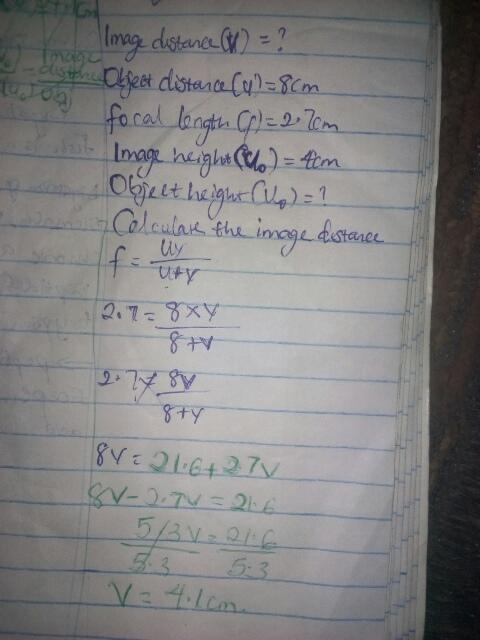 Image distance (V) = ?
Object distance (u) = 8cm
focal length (f) = 2.7cm
Image height (U₀) = 4cm
Object height (U₀) = ?
Calculate the image distance
f = uv
u+v
2.7 = 8×v
8+v
2.7 8v
8+v
8v = 21.6 + 2.7v
8v - 2.7v = 21.6
5/3v = 21.6
5.3 5.3
V = 4.1cm
Image
distance